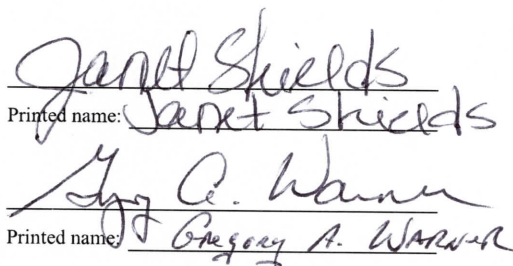 Janet Shields
Printed name: Janet Shields
Gregory A. Warner
Printed name: Gregory A. Warner